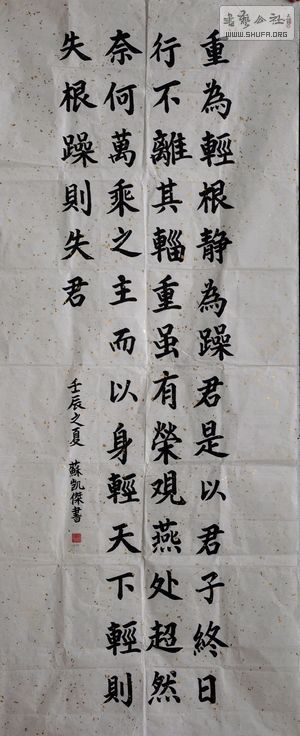 重為輕根静為躁君是以君子終日
行不離其輜重虽有榮观燕处超然
奈何萬乘之主而以身輕天下輕則
失根躁則失君
壬辰之夏 蘇凱傑書
WWW.SHUFA.ORG